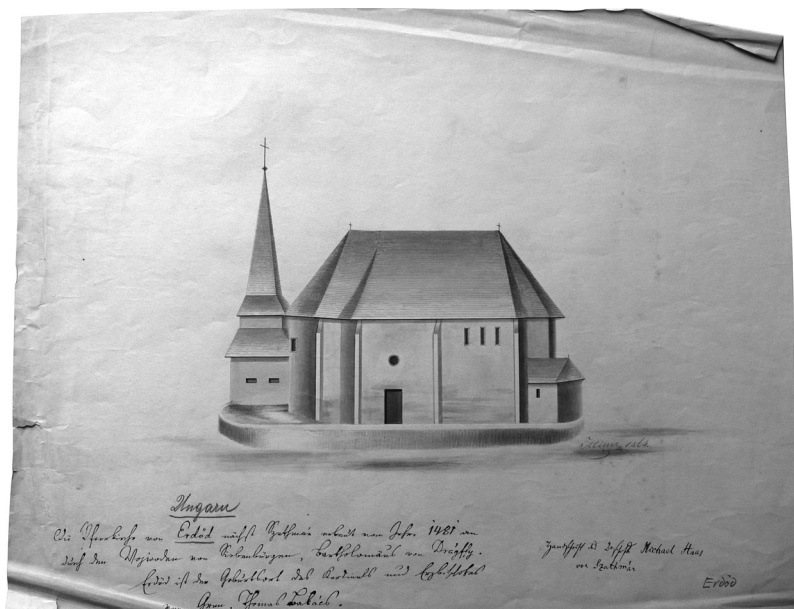 Ungarn
Die Pfarrkirche von Erdöd nächst Szathmár erbaut vom Jahr 1481 von
durch den Woywoden von Siebenbürgen, Bartholomäus von Drágffy.
Erdöd ist der Geburtsort des Kardinals und Erzbischofes
von Gran, Thomas Bakács.
Handschrift d. Bischofs Michael Haas
von Szathmár
Erdöd